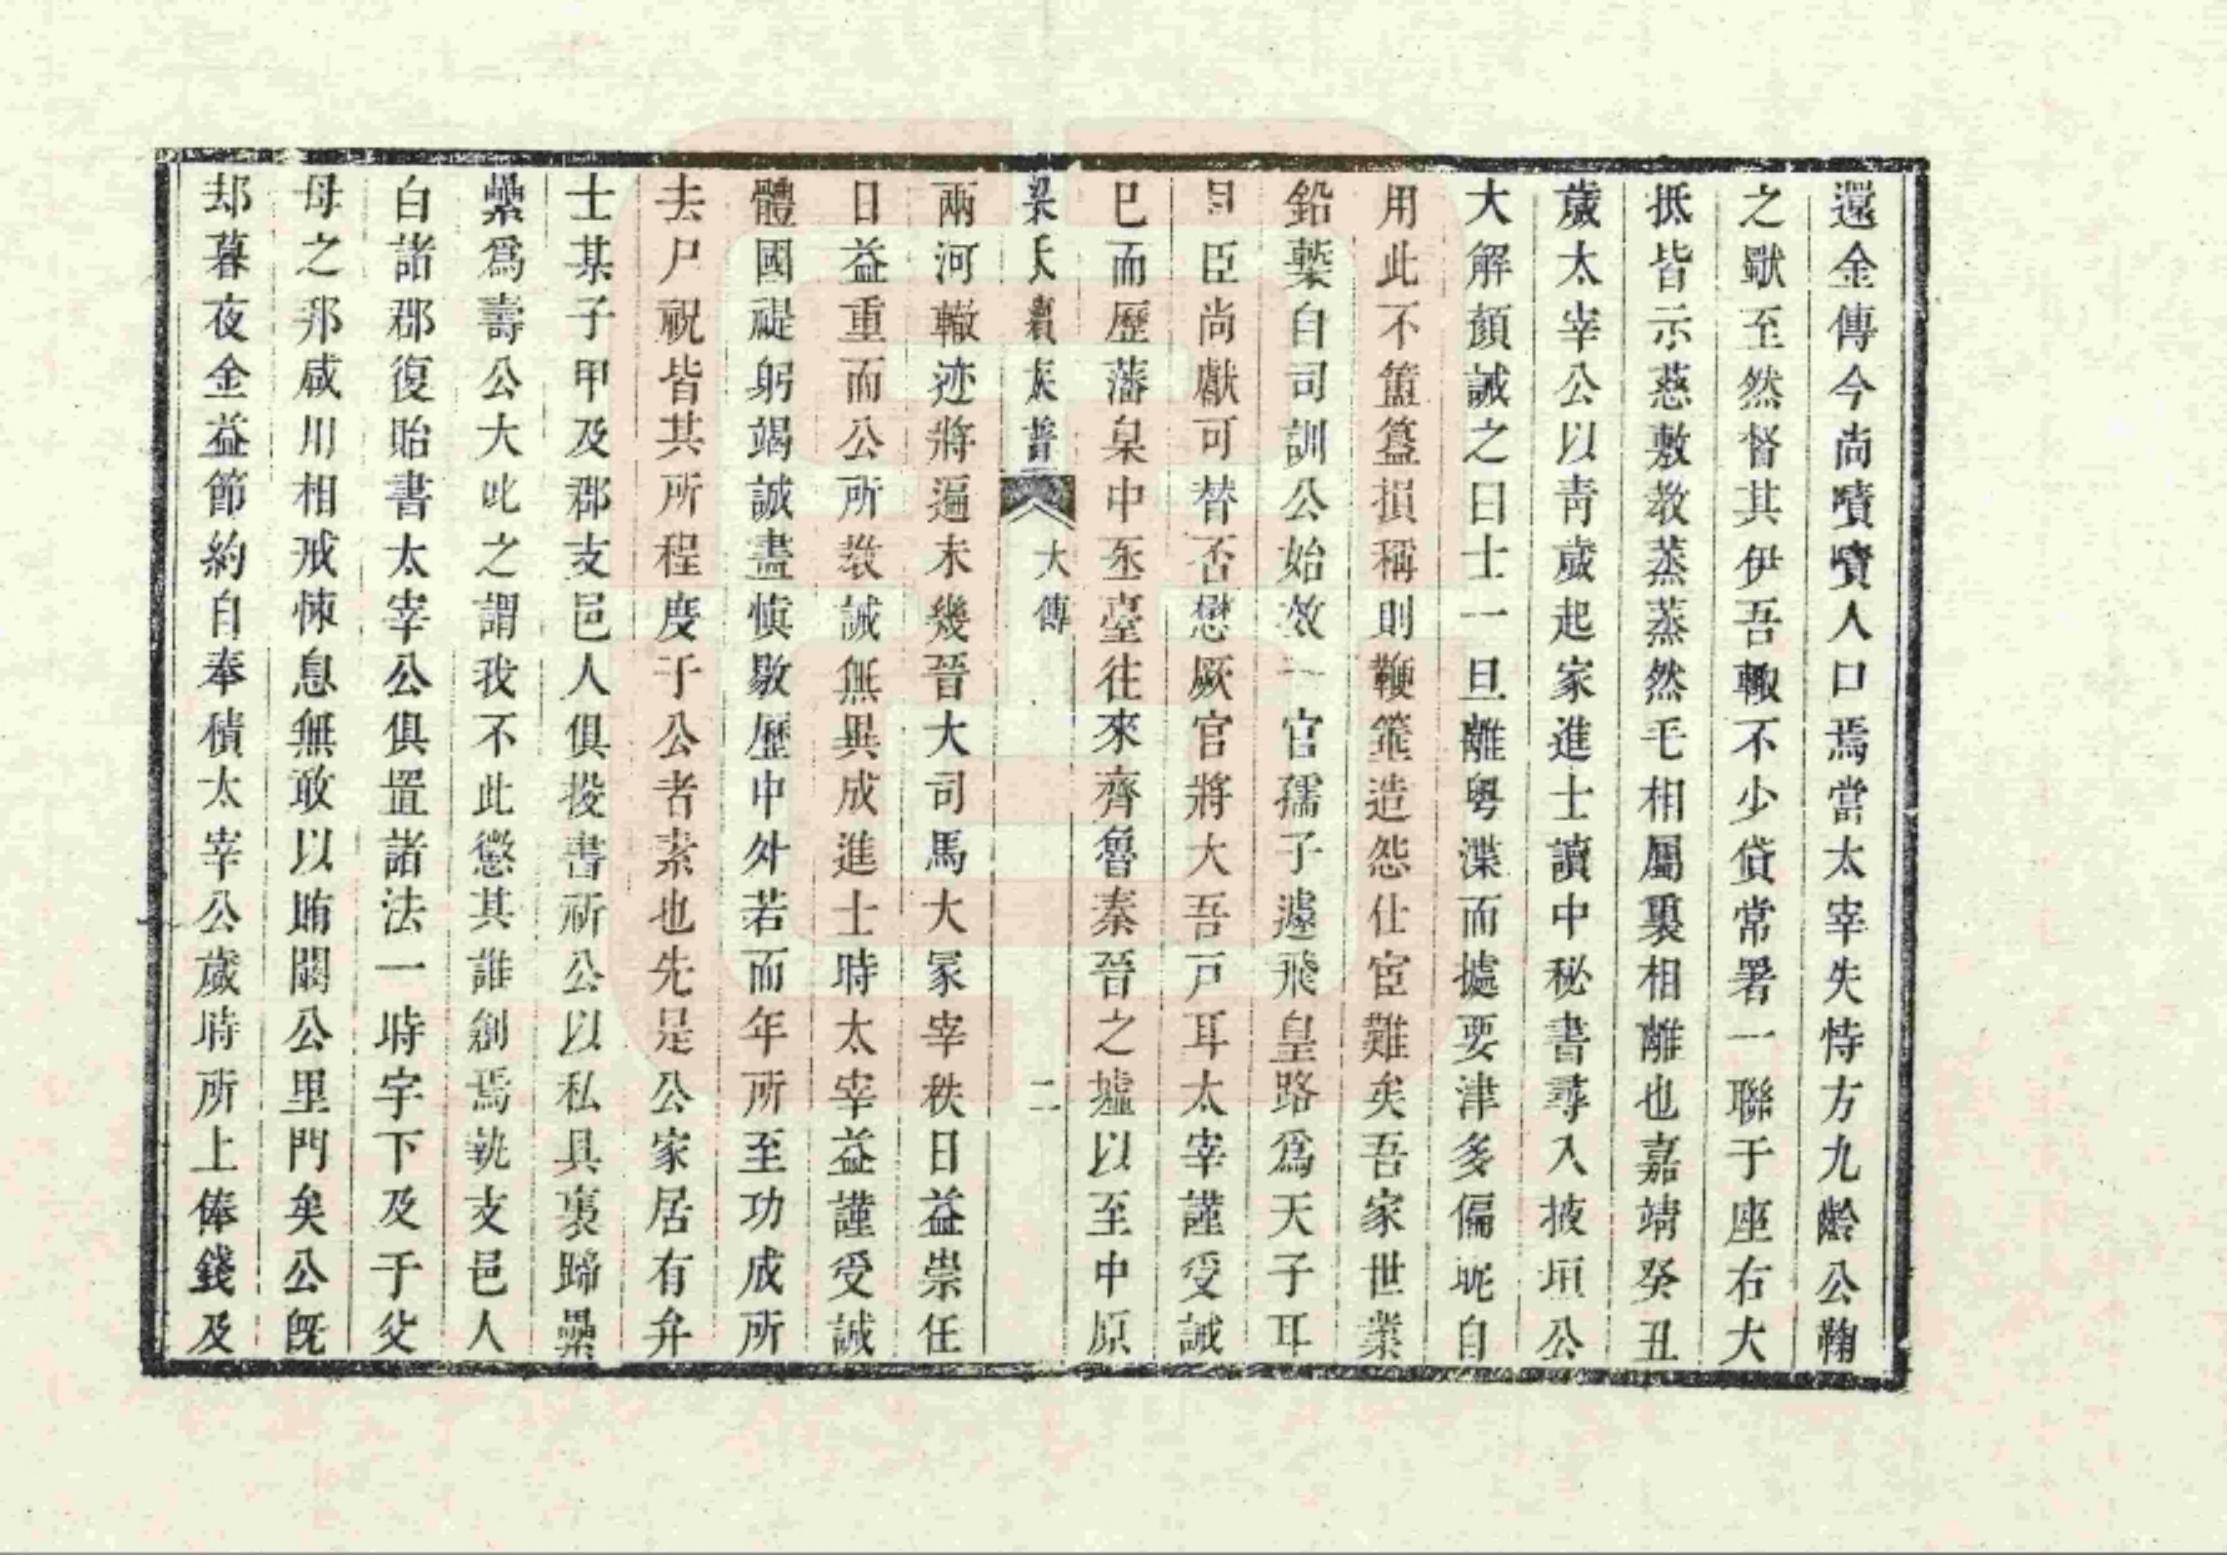 還金傳今尚嘖嘖人口焉當太宰失恃方九齡公鞠
之歡至然督其伊吾輙不少貸常署一聯于座右大
抵皆示慈敷教蒸蒸然毛相屬裏相離也嘉靖癸丑
歲太宰公以青歲起家進士讀中秘書尋入掖垣公
大解顏誡之曰士一旦離粤渫而摅要津多偏昵自
用此不簠簋損稱則鞭箠造怨仕宦難矣吾家世業
鉛槧自司訓公始效一官孺子遽飛皇路爲天子耳
目臣尚獻可替否懋厥官將大吾戸耳太宰謹受誡
巳而歷藩臬中丞臺往來齊魯秦晉之墟以至中原
梁氏　族譜　大傳　二
兩河轍迹將遍未幾晉大司馬大冢宰秩日益崇任
日益重而公所教誡無異成進士時太宰益謹受誡
體國禔躬竭誠盡愼敭歷中外若而年所至功成所
去尸祝皆其所程度于公者素也先是公家居有弁
士某子甲及郡支邑人俱投書祈公以私具裏蹄纍
纍爲壽公大叱之謂我不此懲其誰創焉執支邑人
白諸郡復貽書太宰公俱置諸法一時宇下及于父
母之邦咸用相戒悚息無敢以賄闌公里門矣公旣
却暮夜金益節約自奉積太宰公歲時所上俸錢及